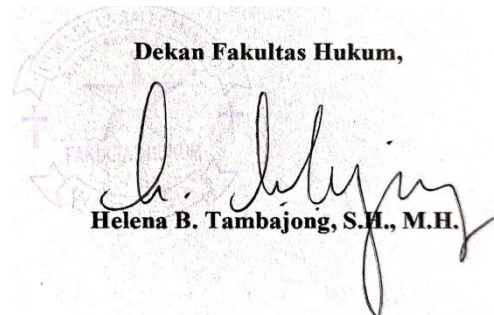 Dekan Fakultas Hukum,
FAKULTAS HUKUM
Helena B. Tambajong, S.H., M.H.